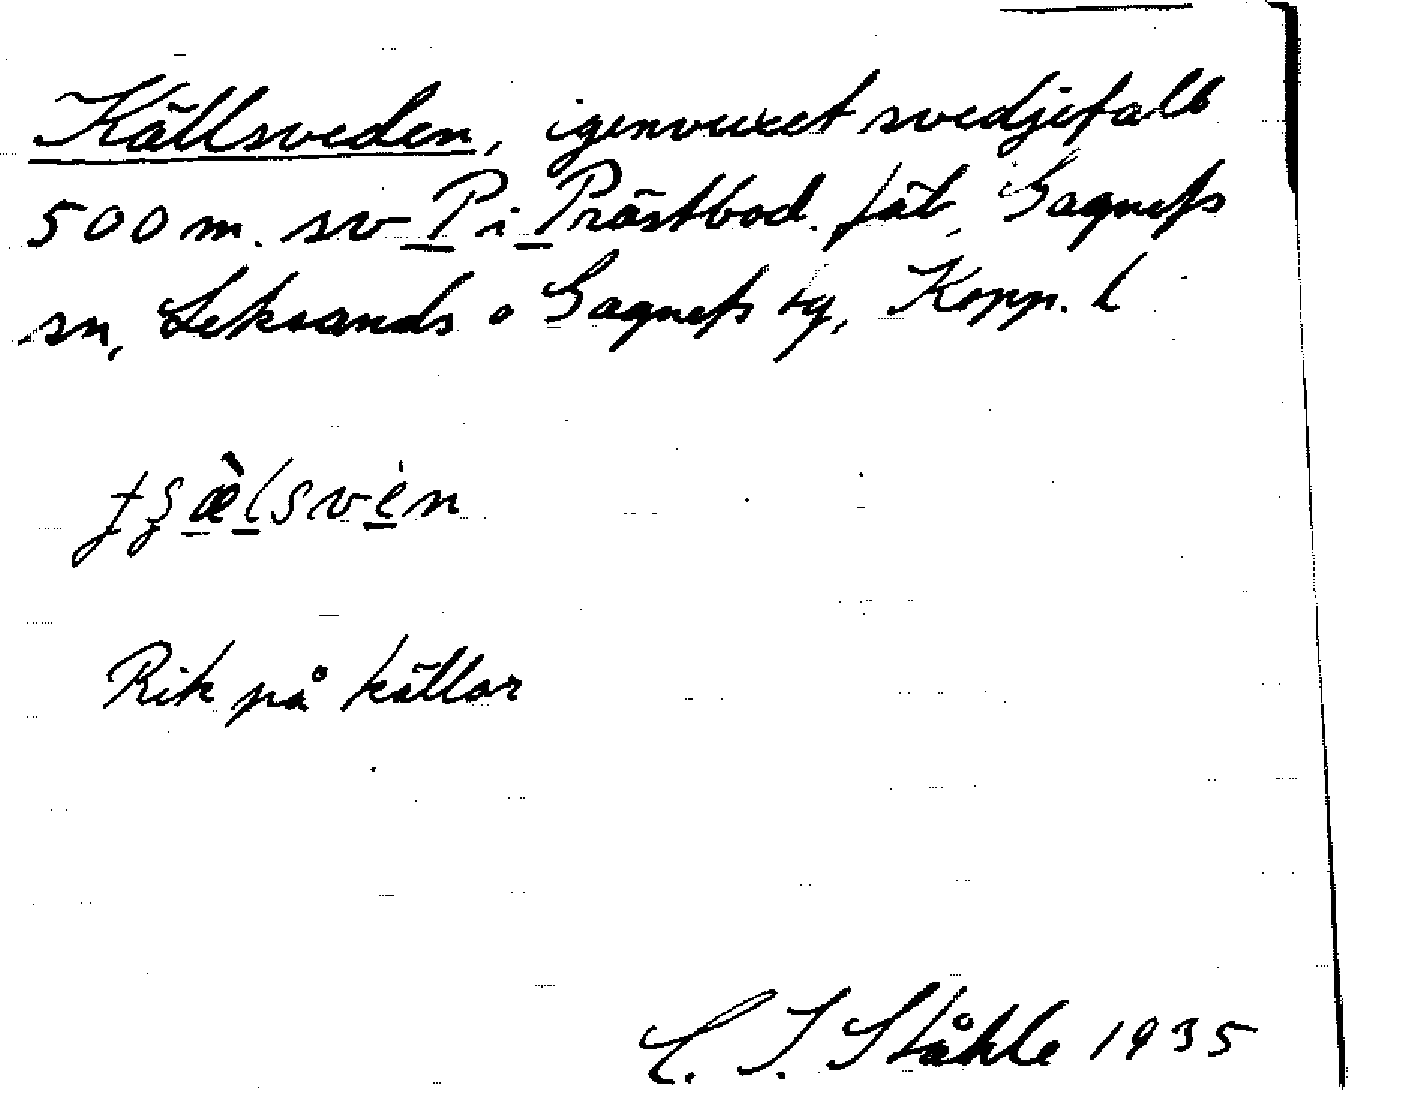 Källsveden, igenvuxet svedjefall
500 m. sv P i Prästbod. fäb, Gagnefs
sn, Leksands o Gagnefs tg, Kopp. l
Rik på källor
C. I. Ståhle 1935